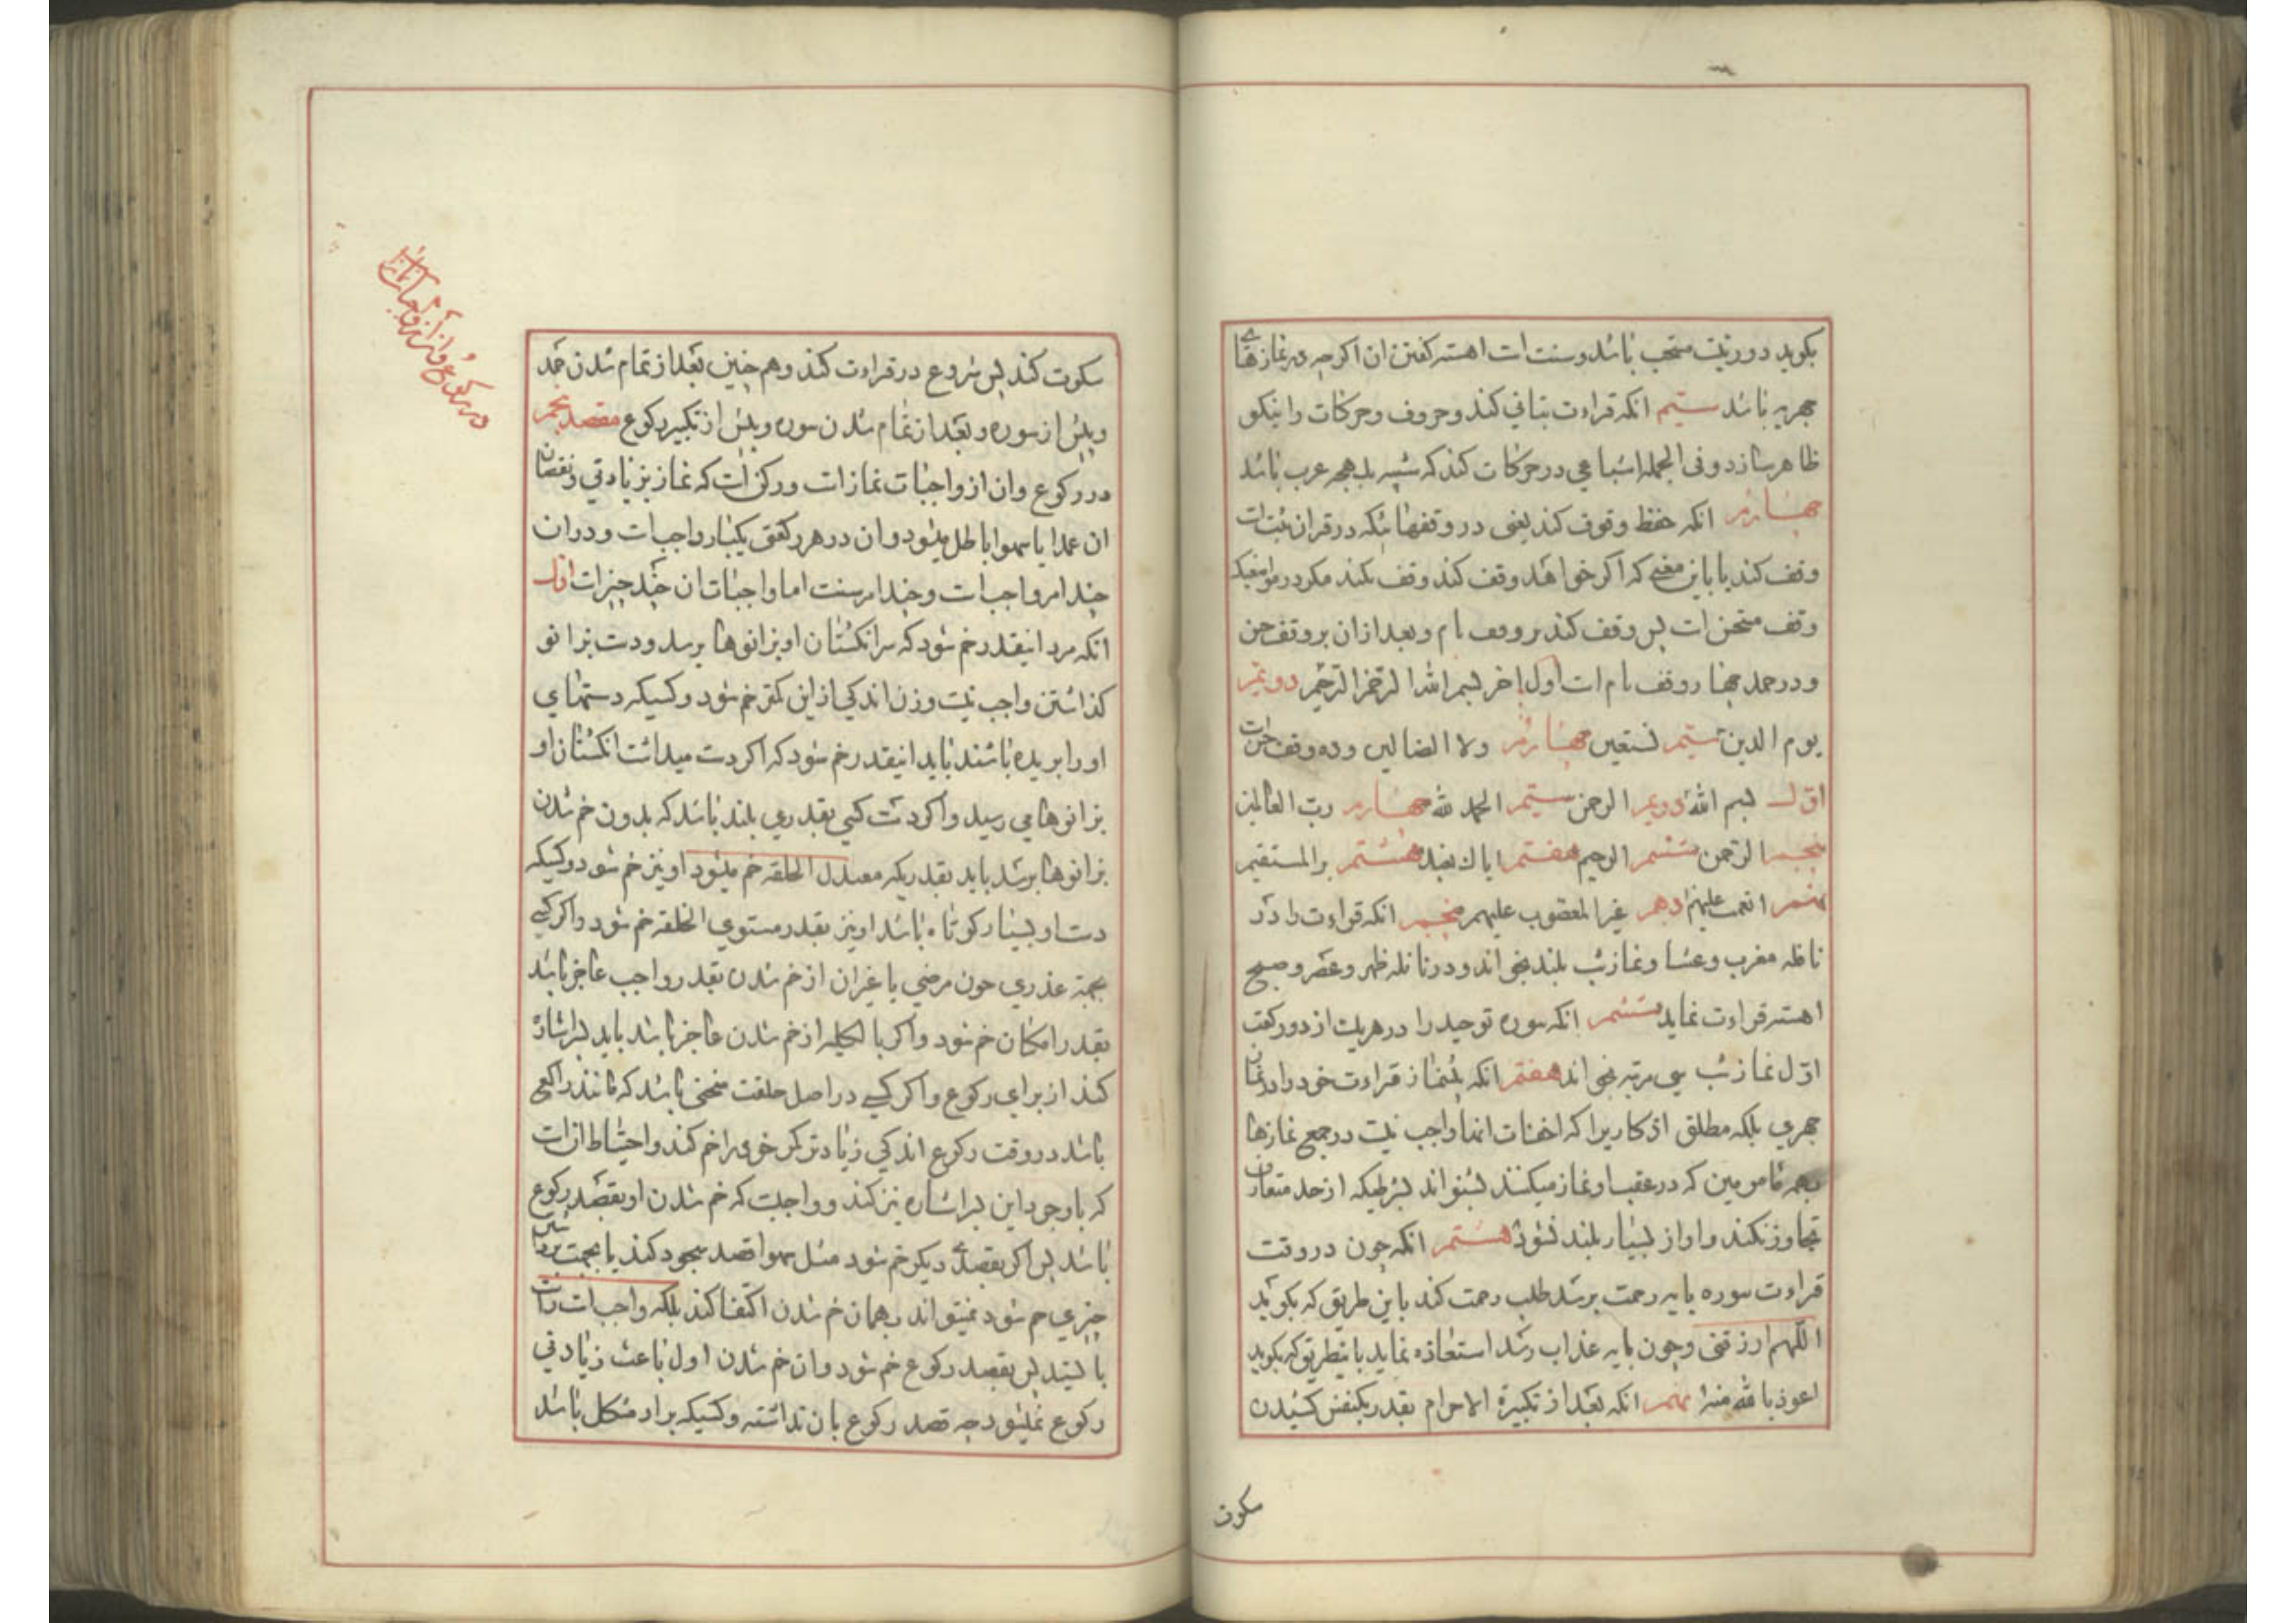 بکوید دو رنیت مستحب باشد و سنت است اهسته کفتن ان اکرچه در نمازهای
جهریه باشد سیّم انکه قراءت بتانی کند و حروف و حرکات را نیکو
ظاهر سازد و فی الجمله اشباعی در حرکات کند که شبیه بلهجه عرب باشد
چهارم انکه حفظ وقوف کند یعنی در وقفهائیکه در قران ثبت است
وقف کند یا باین معنی که اکر خواهد وقف کند وقف نکند مکر در مواضعیکه
وقف مستحسن است پس وقف کند بر وقف تام و بعد از ان بر وقف حسن
و در حمد چهار وقف تام است اول اخر بسم الله الرحمن الرحیم دویّم
یوم الدین سیّم نستعین چهارم ولا الضالین و ده وقف حسن است
اوّل بسم الله دویم الرحمن سیّم الحمد لله چهارم ربّ العالمین
پنجم الرحمن ششم الرحیم هفتم ایاک نعبد هشتم المستقیم
نهم انعمت علیهم دهم غیر المغضوب علیهم پنجم انکه قراءت را در
نافله مغرب و عشا و نماز شب بلند بخواند و در نافله ظهر و عصر و صبح
اهسته قراءت نماید ششم انکه سوره توحید را در هر یک از دو رکعت
اوّل نماز شب سی مرتبه بخواند هفتم انکه پیشنماز قراءت خود را در نماز
جهری بلکه مطلق اذکاریرا که اخفات انها واجب نیست در جمیع نمازها
بهمه مامومین که در عقب او نماز میکنند بشنواند بشرطیکه از حد متعارف
تجاوز نکند و اواز بسیار بلند نشود هشتم انکه چون در وقت
قراءت سوره بایه رحمت برسد طلب رحمت کند باین طریق که بکوید
اللّهم ارزقنی و چون بایه عذاب رسد استعاذه نماید باینطریق که بکوید
اعوذ بالله منها نهم انکه بعد از تکبیرة الاحرام بقدر یکنفس کشیدن
سکوت
در رکوع و ان از واجبات نماز است
سکوت کند پس شروع در قراءت کند و هم چنین بعد از تمام شدن حمد
و پیش از سوره و بعد از تمام شدن سوره و پیش از تکبیر رکوع مقصد پنجم
در رکوع و ان از واجبات نماز است و رکن است که نماز بزیادتی و نقصان
ان عمدا یا سهوا باطل میشود و ان در هر رکعتی یکبار واجب است و در ان
چند امر واجب است و چند امر سنت اما واجبات ان چند چیز است اوّل
انکه مرد اینقدر خم شود که سر انکشتان او بزانوها برسد و دست بزانو
کذاشتن واجب نیست و زن اندکی از این کمتر خم شود و کسیکه دستهای
او را بریده باشند باید اینقدر خم شود که اکر دست میداشت انکشتان او
بزانوها می رسید و اکر دست کسی بقدری بلند باشد که بدون خم شدن
بزانوها برسد باید بقدریکه معتدل الخلقه خم میشود او نیز خم شود و کسیکه
دست او بسیار کوتاه باشد او نیز بقدر مستوی الخلقه خم شود و اکر کسی
بجهة عذری چون مرضی یا غیر ان از خم شدن بقدر واجب عاجز باشد
بقدر امکان خم شود و اکر بالکلیه از خم شدن عاجز باشد باید بسر اشاره
کند از برای رکوع و اکر کسی در اصل خلقت منحنی باشد که مانند راکعی
باشد در وقت رکوع اندکی زیادتر کر خود را خم کند و احتیاط ان است
که با وجود این بسر اشاره نیز کند و واجبست که خم شدن او بقصد رکوع
باشد پس اکر بقصد دیکر خم شود مثل سهوا قصد سجود کند یا بجهت برداشتن
چیزی خم شود نمیتواند بهمان خم شدن اکتفا کند بلکه واجب است راست
بایستد پس بقصد رکوع خم شود و ان خم شدن اول باعث زیادتی
رکوع نمیشود چه قصد رکوع بان نداشته و کسیکه بر او مشکل باشد